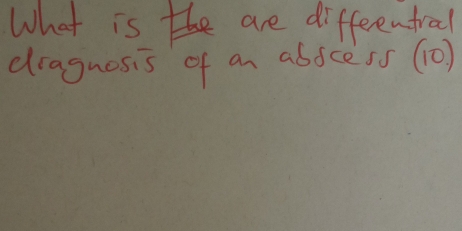 What is the are differential
diagnosis of an abscess (10)